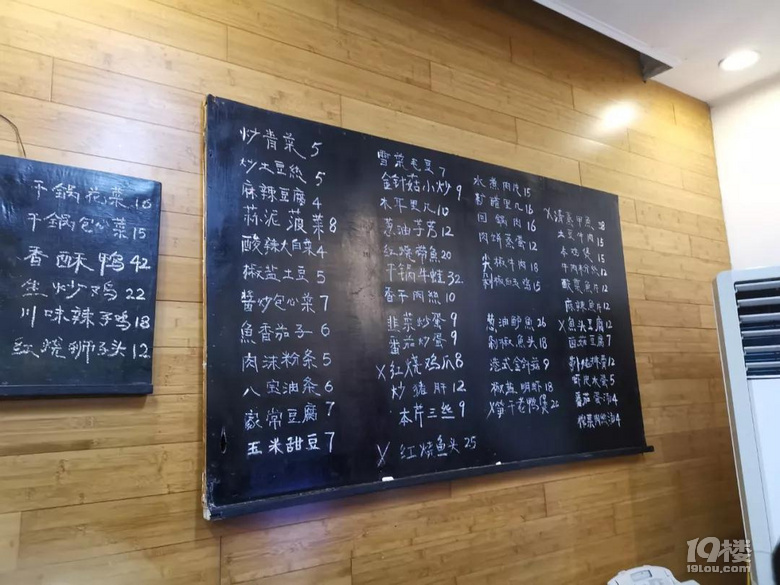 干锅花菜 16
干锅包心菜 15
香酥鸭 42
焦炒鸡 22
川味辣子鸡 18
红烧狮子头 12
炒青菜 5
炒土豆丝 5
麻辣豆腐 4
蒜泥菠菜 8
酸辣大白菜 4
椒盐土豆 5
酱炒包心菜 7
鱼香茄子 6
肉沫粉条 5
八宝油条 6
家常豆腐 7
玉米甜豆 7
雪菜毛豆 7
金针菇小炒 9
木耳里几 10
葱油芋艿 12
红烧带鱼 20
干锅牛蛙 32
香干肉丝 10
韭菜炒蛋 9
番茄炒蛋 9
X 红烧鸡爪 8
炒猪肝 12
本芹三丝 9
X 红烧鱼头 25
水煮肉片 15
糖醋里几 16
回锅肉 16
肉饼蒸蛋 12
尖椒牛肉 18
剁椒 鸡 15
葱油鲈鱼 26
剁椒鱼头 18
港式金针菇 9
椒盐明虾 18
X 笋干老鸭煲 20
X 清蒸甲鱼 38
土豆牛肉 15
15
牛肉粉丝 12
12
麻辣鱼片 12
X 鱼头豆腐 12
豆腐 7
12
虾皮水蒸蛋 5
番茄蛋汤 4
榨菜肉丝汤 4
19楼
19lou.com